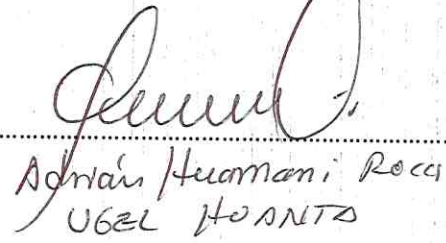 Adrián Huamani Rocci
UGEL HUANTA